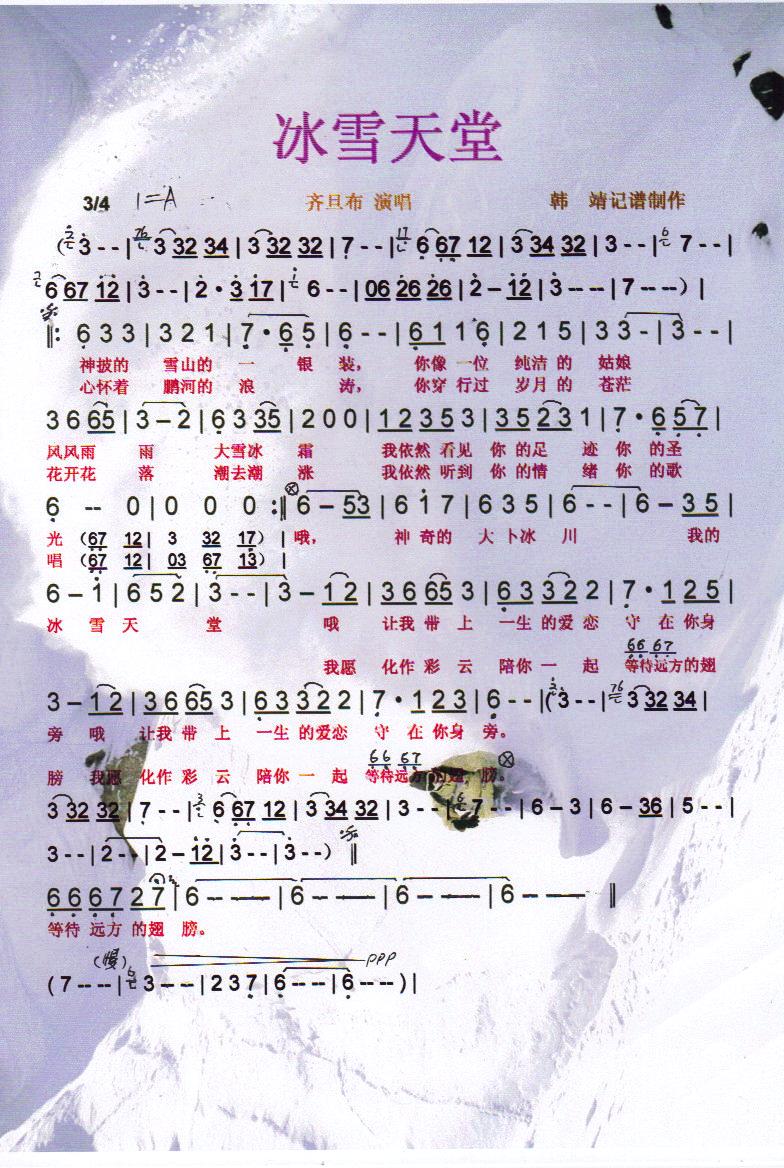 冰雪天堂
3/4 1=A 齐旦布 演唱 韩 靖记谱制作
(3 - - | 3 32 34 | 3 32 32 | 7 - - | 6 67 12 | 3 34 32 | 3 - - | 7 - - |
6 67 12 | 3 - - | 2 · 3 17 | 6 - - | 06 26 26 | 2 - 12 | 3 -- -- | 7 -- -- ) |
‖: 6 3 3 | 3 2 1 | 7 · 6 5 | 6 - - | 6 1 1 6 | 2 1 5 | 3 3 - | 3 - - |
神披的 雪山的 一 银 装, 你像 一位 纯洁 的 姑娘
心怀着 鹏河的 浪 涛, 你穿 行过 岁月 的 苍茫
3 6 65 | 3 – 2 | 6 3 35 | 2 0 0 | 1 2 3 5 3 | 3 5 2 3 1 | 7 · 6 5 7 |
风风雨 雨 大雪冰 霜 我依然 看见 你 的足 迹 你 的圣
花开花 落 潮去潮 涨 我依然 听到 你 的情 绪 你 的歌
6 -- 0 | 0 0 0 :‖ 6 – 53 | 6 1 7 | 6 3 5 | 6 - - | 6 – 3 5 |
光 (67 12 | 3 32 17) | 哦, 神 奇的 大 卜冰 川 我的
唱 (67 12 | 03 67 13) |
6 – 1 | 6 5 2 | 3 - - | 3 – 1 2 | 3 6 65 3 | 6 3 3 2 2 | 7 · 1 2 5 |
冰 雪 天 堂 哦 让我 带 上 一生 的爱 恋 守 在 你身
66 67
我愿 化作 彩 云 陪你 一 起 等待远方的翅
3 – 1 2 | 3 6 65 3 | 6 3 3 2 2 | 7 · 1 2 3 | 6 - - | (3 - - | 3 32 34 |
旁 哦 让我 带 上 一生 的爱恋 守 在 你身 旁。
66 67
膀 我愿 化作 彩 云 陪你 一 起 等待远方的翅 膀。
3 32 32 | 7 - - | 6 67 12 | 3 34 32 | 3 - - | 7 - - | 6 – 3 | 6 – 36 | 5 - - |
3 - - | 2 - - | 2 – 12 | 3 - - | 3 - - ) ‖
6 6 6 7 2 7 | 6 – —— | 6 – —— | 6 – —— | 6 – —— ‖
等待 远方 的翅 膀。
(慢) ppp
( 7 -- -- | 3 -- -- | 2 3 7 | 6 -- -- | 6 -- -- ) |